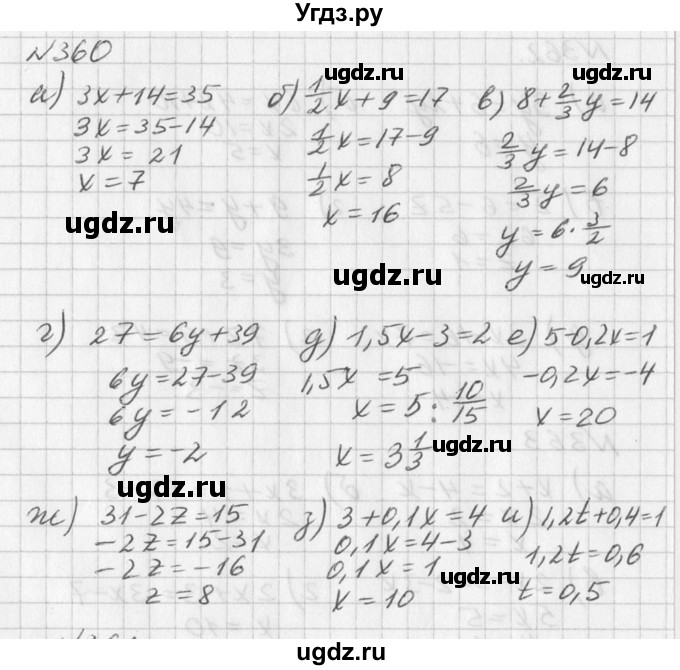 Угдз.ру
№360
а) 3x+14=35
3x=35-14
3x= 21
x=7
б) 1/2 x+9=17
1/2 x=17-9
1/2 x=8
x=16
в) 8+2/3 y=14
2/3 y=14-8
2/3 y=6
y=6·3/2
y=9
г) 27=6y+39
6y=27-39
6y=-12
y=-2
д) 1,5x-3=2
1,5x =5
x=5:10/15
x=3 1/3
е) 5-0,2x=1
-0,2x=-4
x=20
ж) 31-2z=15
-2z=15-31
-2z=-16
z=8
з) 3+0,1x=4
0,1x=4-3
0,1x=1
x=10
и) 1,2t+0,4=1
1,2t=0,6
t=0,5
ugdz.ru
ugdz.ru
ugdz.ru
ugdz.ru
ugdz.ru
ugdz.ru
ugdz.ru
ugdz.ru
ugdz.ru
ugdz.ru
ugdz.ru